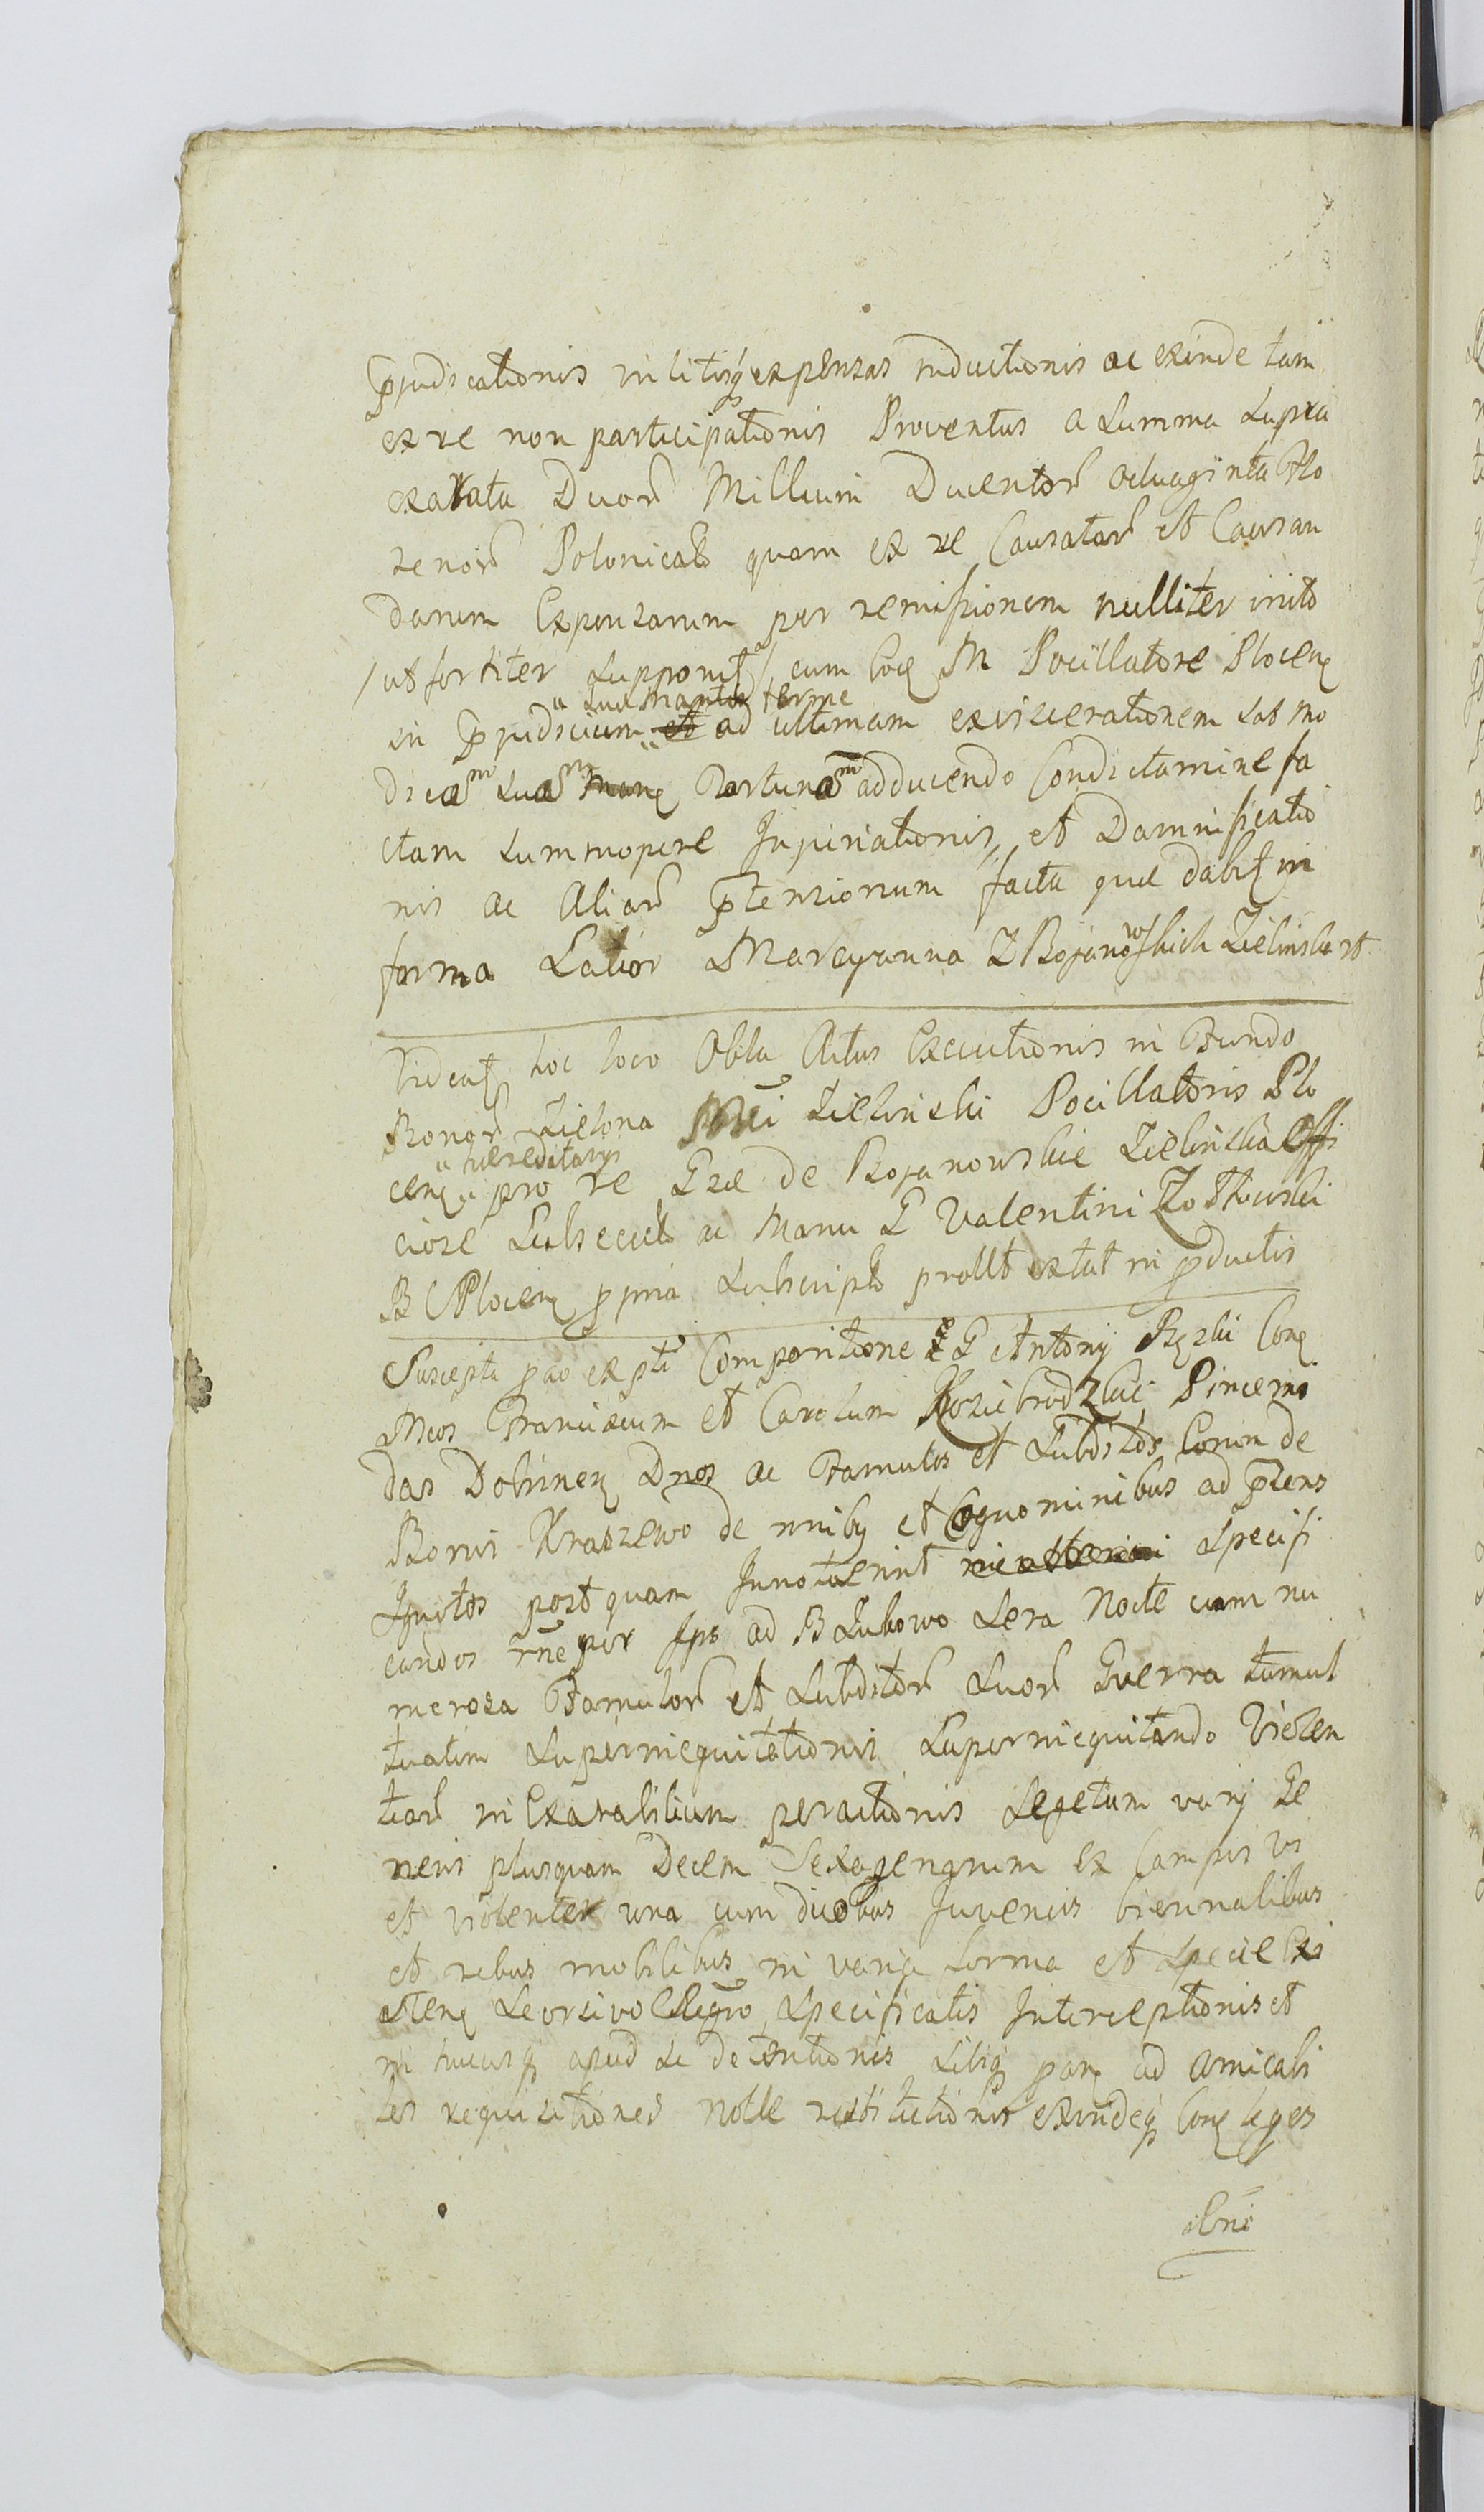 prjudicationis in litisq expensas inductionis ac exinde tam
ex re non participationis Proventus a Summa supra
exarata Duor Millium Ducentor octuaginta Flo
renor Polonical quam ex re Causatar et Causan
darum Expensarum per remissionem nulliter inito
/ut fortiter supponit/ cum Coq M Pocillatore Plocen
suae Mantis ferme
in prjudicium et ad ultimam eviscerationem sat mo
dicam suam Fortunam adducendo Condictamine fa
ctam summopere Injuriationis et Damnificatio
nis ac Aliar ptensionum facta que dabit in
forma Latior Maryanna Z Bojanowskich Zielinska rt
Videat hoc loco Obla Actus Executionis in Fundo
Bonor Zielona Mci Zielinski Pocillatoris Plo
haereditarys
cen pro re Gsae de Bojanowskie Zielinska Offi
ciose Subsecut ac Manu G Valentini Zołtowski
B Plocen ppria Subscript prout extat in pductis
Suscepta pao ex pti Comparitione G Antonij Rzski Con
Mcos Franciscum et Carolum Koziebrodzkie Pincerni
das Dobrinen Dnos ac Famulos et Subditos Eorum de
Bonis Kraszewo de nnibq et Cognominibus ad ptens
Ignotos postquam Innotuerint Specifi
candos rne per Ips ad B Lubowo Sera Nocte cum nu
merosa Famulor et Subditor Suor Guerra tumul
tuatim Superinequitationis Superinequitando Violen
tiar in Exarabilium peractionis Segetum varij Ge
neris plusquam Decem Sexagenarum ex Campis vi
et violenter una cum duobus Juvencis biennalibus
et rebus mobilibus in varia forma et specie Exi
sten Seorsivo Regro Specificatis Interceptionis et
in hucusq apud se detentionis Sibiq pan ad amicabi
les requisitiones Nolle restitutionis exindeq Con leges